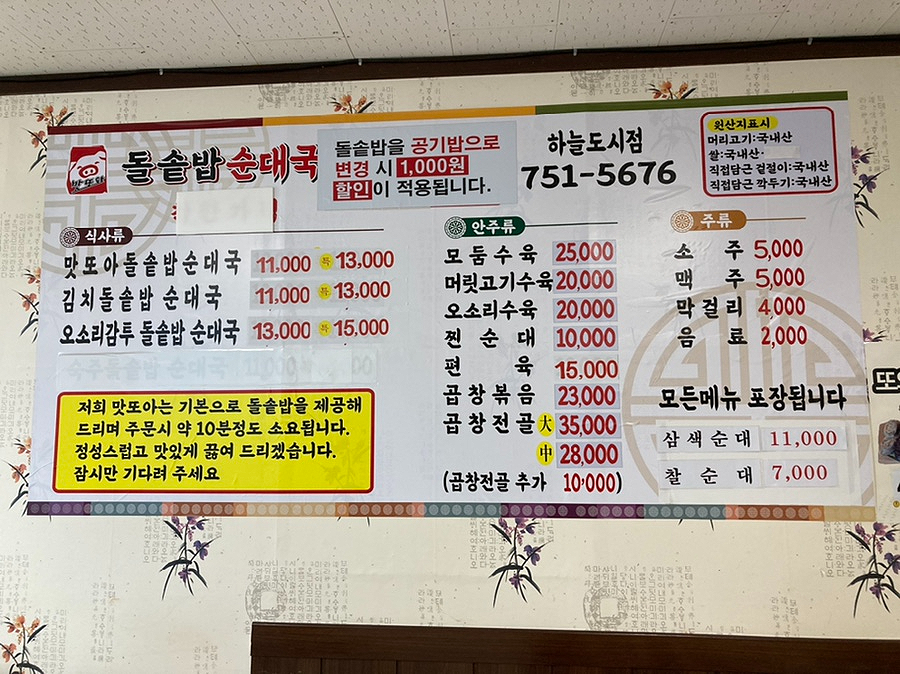 맛또아
돌솥밥 순대국
돌솥밥을 공기밥으로
변경 시 1,000원
할인이 적용됩니다.
하늘도시점
751-5676
원산지표시
머리고기:국내산
쌀:국내산
직접담근 겉절이:국내산
직접담근 깍두기:국내산
식사류
맛또아돌솥밥순대국 11,000 특 13,000
김치돌솥밥 순대국 11,000 특 13,000
오소리감투 돌솥밥 순대국 13,000 특 15,000
저희 맛또아는 기본으로 돌솥밥을 제공해
드리며 주문시 약 10분정도 소요됩니다.
정성스럽고 맛있게 끓여 드리겠습니다.
잠시만 기다려 주세요
안주류
모둠수육 25,000
머릿고기수육 20,000
오소리수육 20,000
찐순대 10,000
편육 15,000
곱창볶음 23,000
곱창전골 大 35,000
中 28,000
(곱창전골 추가 10,000)
주류
소주 5,000
맥주 5,000
막걸리 4,000
음료 2,000
모든메뉴 포장됩니다
삼색순대 11,000
찰순대 7,000